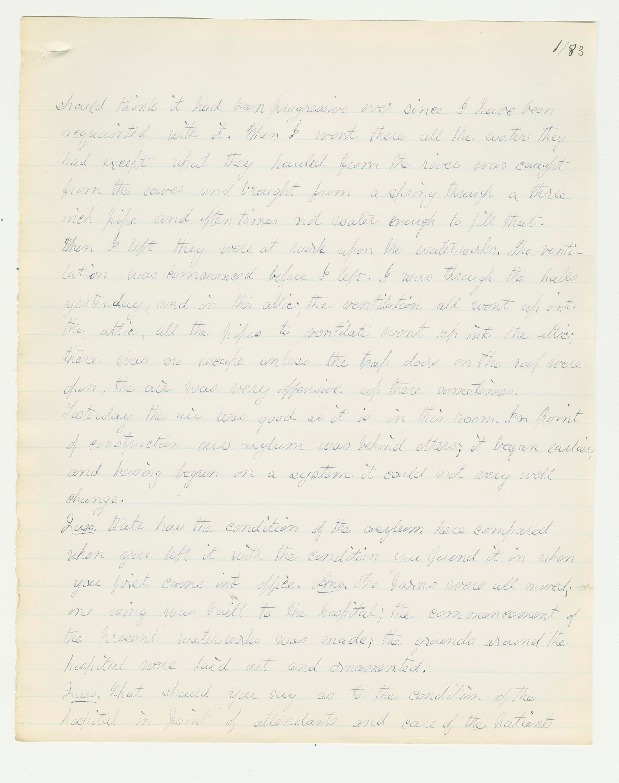 1/83
should think it had been progressive ever since I have been
acquainted with it. When I went there all the water they
had except what they hauled from the river was caught
from the eaves and brought from a spring through a three
inch pipe and often times not water enough to fill that.
When I left they were at work upon the waterworks. The venti-
lation was commenced before I left. I was through the halls
yesterday, and in the attic; the ventilation all went up into
the attic, all the pipes to ventilate went up into the attic;
there was no escape unless the trap doors on the roof were
open, the air was very offensive up there sometimes.
Yesterday the air was good as it is in this room. In point
of construction our asylum was behind others; it began earlier,
and having begun on a system it could not very well
change.
Ques. State how the condition of the asylum here compared
when you left it with the condition you found it in when
you first came into office. Ans. The barns were all moved;
one wing was built to the hospital; the commencement of
the present waterworks was made; the grounds around the
hospital were laid out and ornamented.
Ques. What should you say as to the condition of the
hospital in point of attendants and care of the patients